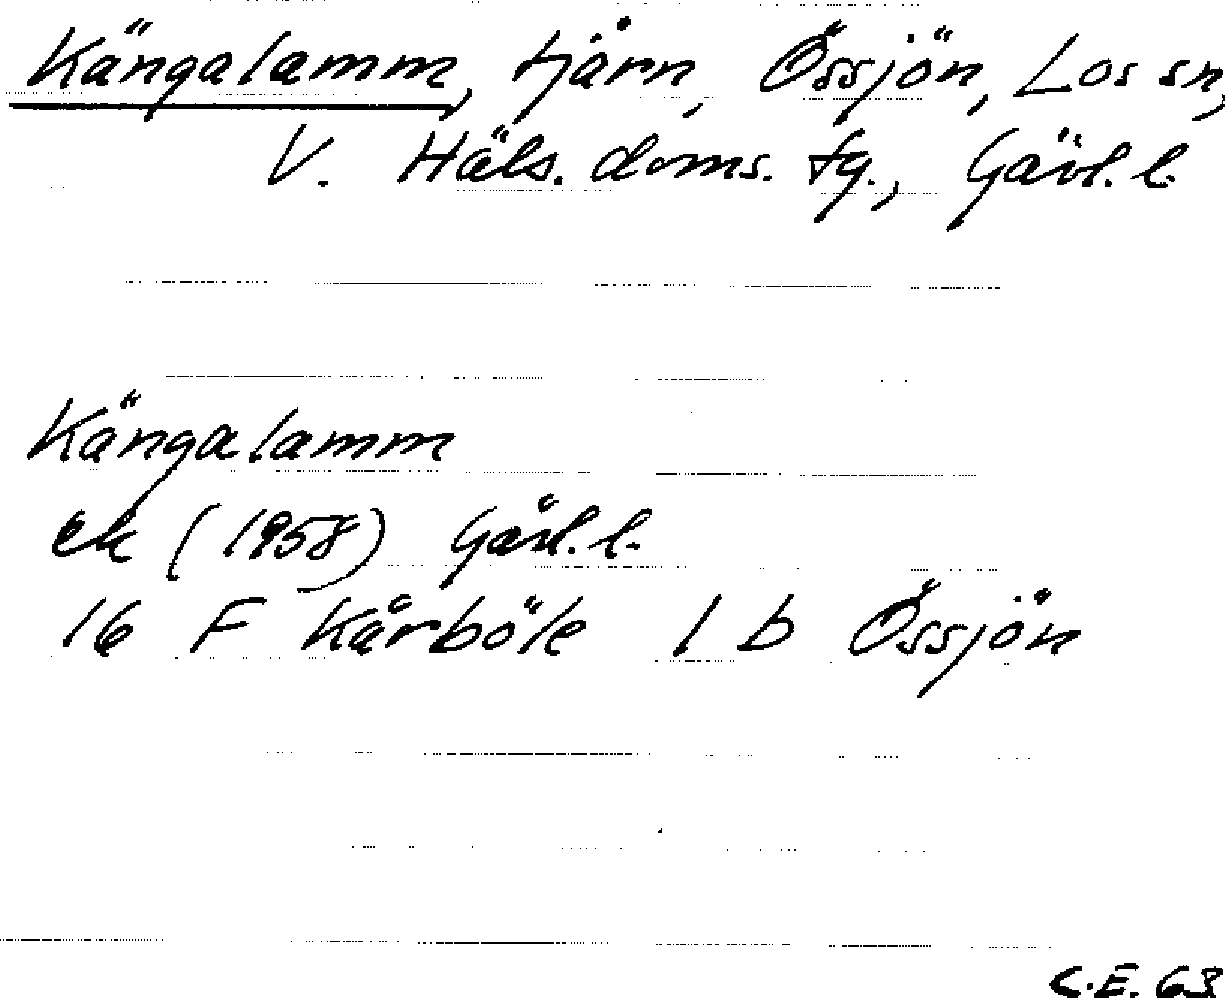 Kängalamm, tjärn, Össjön, Los sn,
V. Häls. doms. tg., Gävl. l.
Kängalamm
ek (1958) Gävl. l.
16 F Kårböle 1 b Össjön
C.E. 63